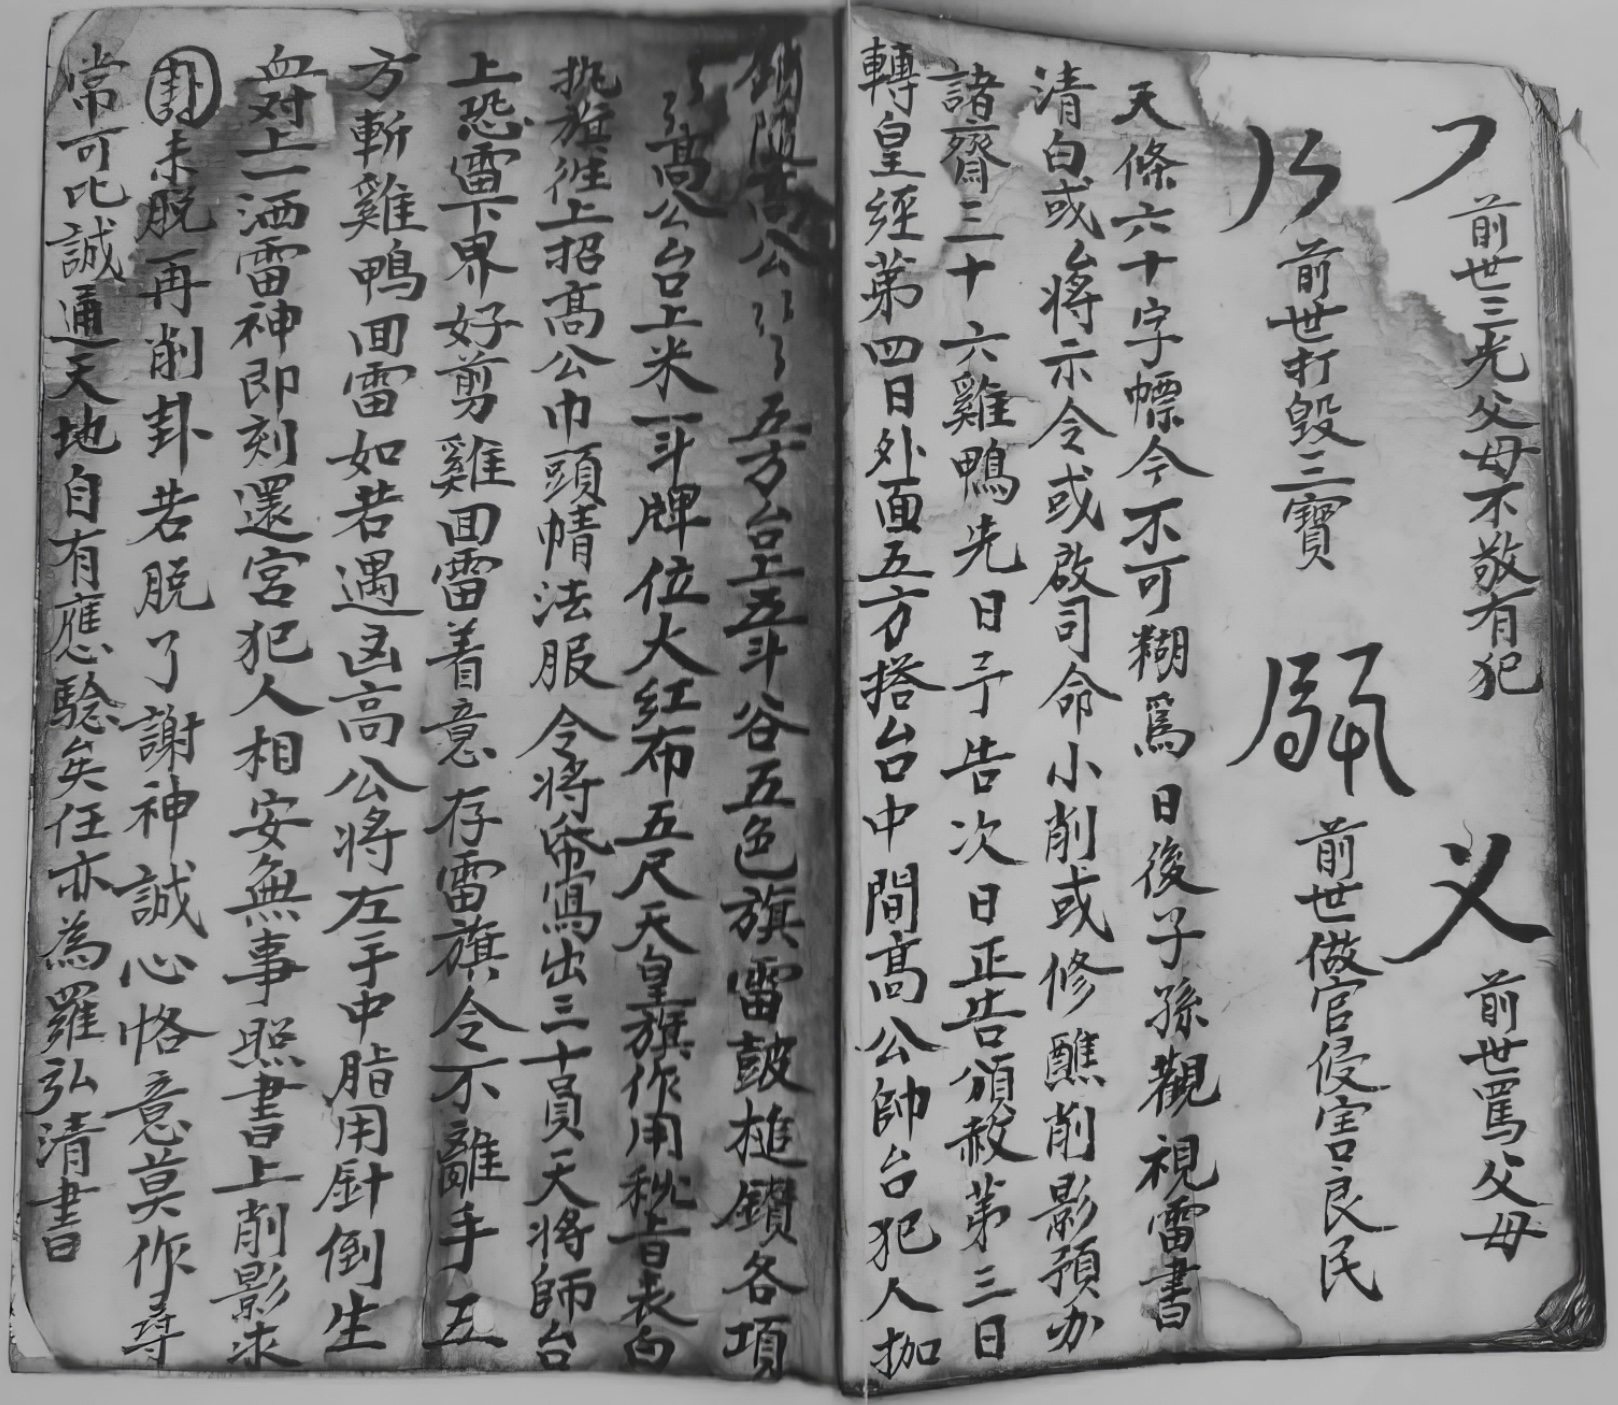 前世三光父母不敬有犯
前世罵父母
前世打毀三寶
前世做官侵害良民
天條六十字幖令不可糊爲日後子孫觀視雷書
清白或台將示令或啟司命小削或修醮削影預办
諸齋三十六雞鴨先日予告次日正告頒赦第三日
轉皇經第四日外面五方搭台中間高公帥台犯人枷
鎖 高公 五方台上五斗谷五色旗雷鼓槌鑽各項
高公台上米一斗牌位大紅布五尺天皇旗作用秘旨表白
執旗徃上招高公巾頭幘法服令將帋寫出三十員天將師台
上恐雷下界好剪雞囬雷着意存雷旗令不離手五
方斬雞鴨囬雷如若遇凶高公將左手中脂用針倒生
血对上一洒雷神即刻還宮犯人相安無事照書上削影求
卦未脫再削卦若脱了謝神誠心恪意莫作尋
常可比誠通天地自有應騐矣任亦為羅弘清書